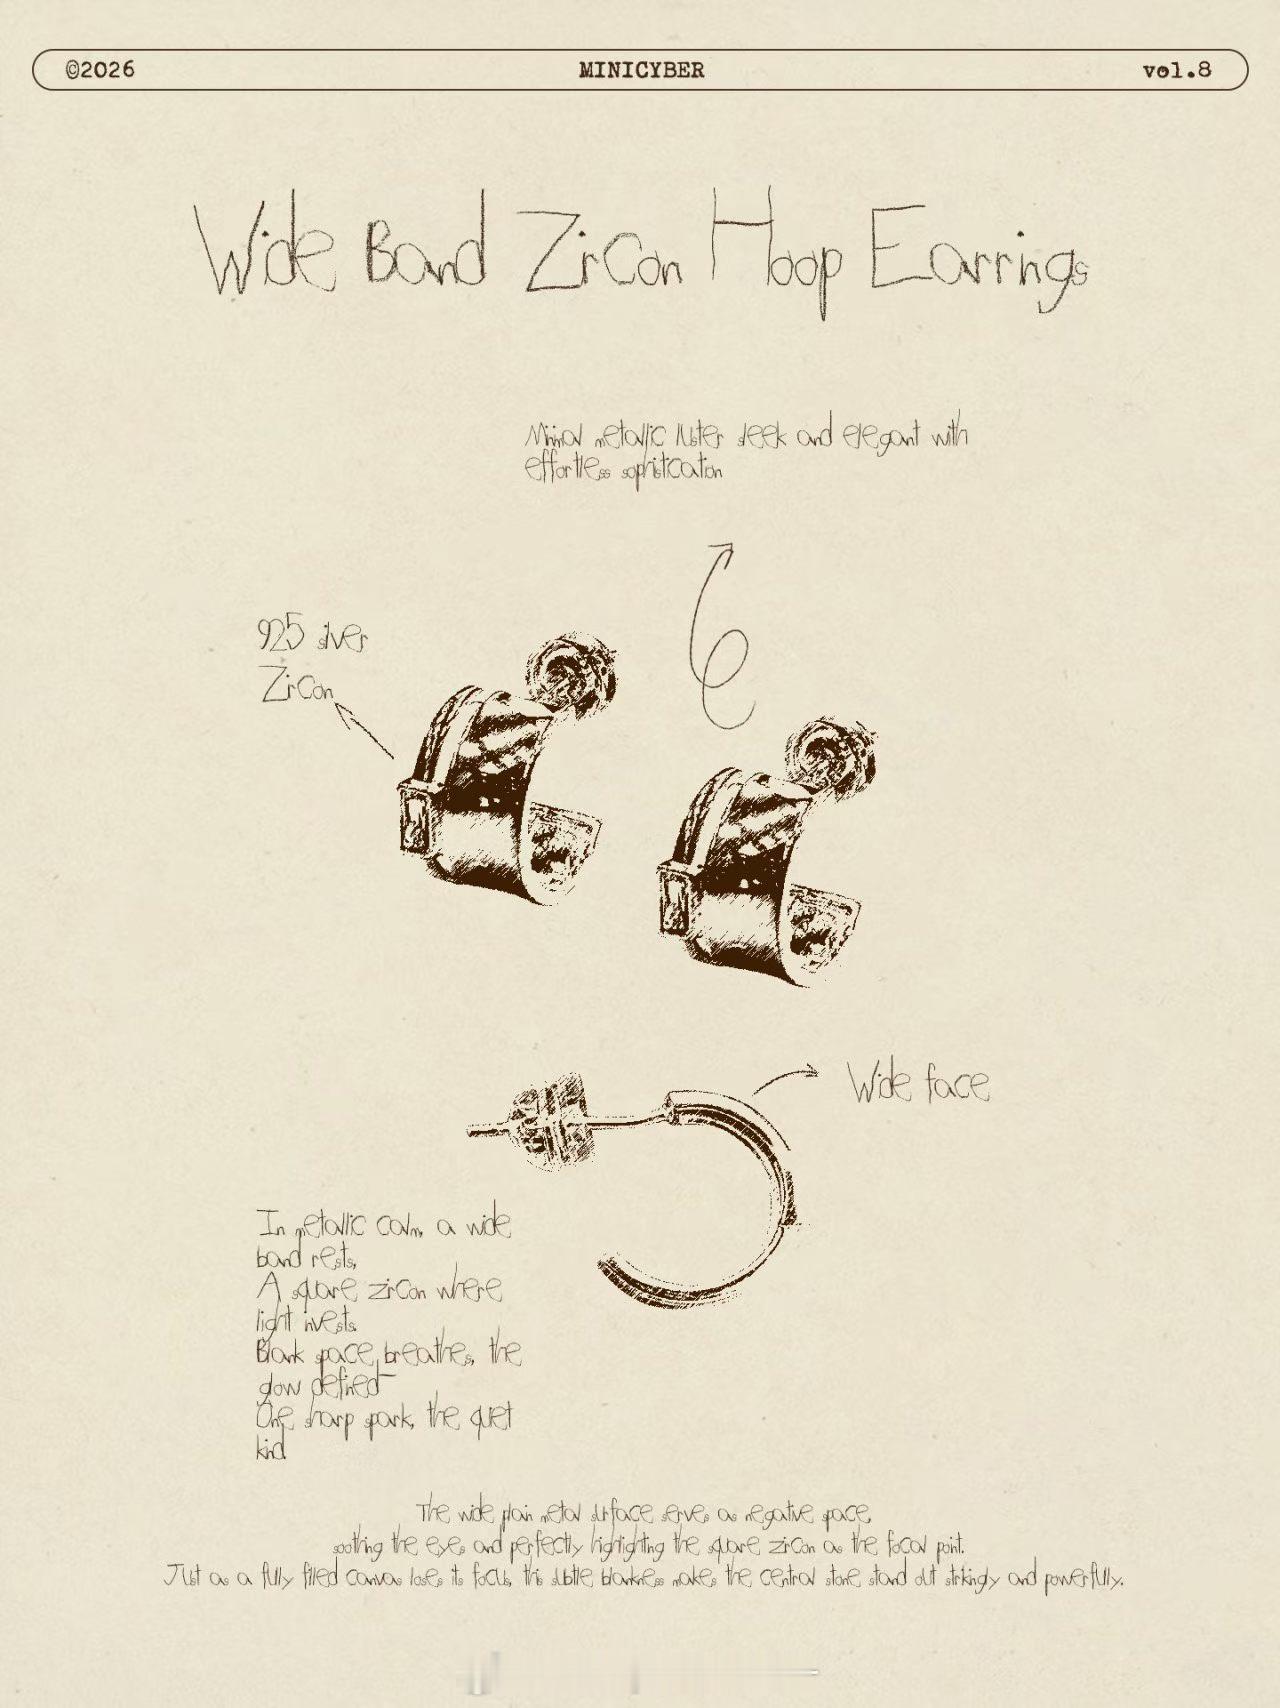 ©2026 MINICYBER vol.8
Wide Band Zircon Hoop Earrings
Minimal metallic luster sleek and elegant with
effortless sophistication
925 silver
Zircon
Wide face
In metallic calm, a wide
band rests,
A square zircon where
light invests.
Blank space breathes, the
glow defined—
One sharp spark, the quiet
kind.
The wide plain metal surface serves as negative space,
soothing the eyes and perfectly highlighting the square zircon as the focal point.
Just as a fully filled canvas loses its focus, this subtle blankness makes the central stone stand out strikingly and powerfully.